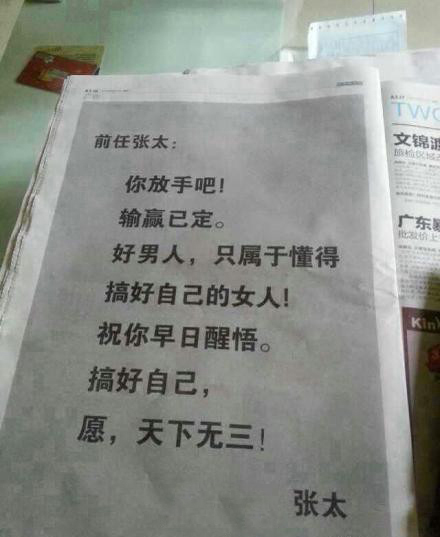 前任张太：
你放手吧！
输赢已定。
好男人，只属于懂得
搞好自己的女人！
祝你早日醒悟。
搞好自己，
愿，天下无三！
张太
TWO
文锦渡
旅检区域
广东暴
批发价上
Kin